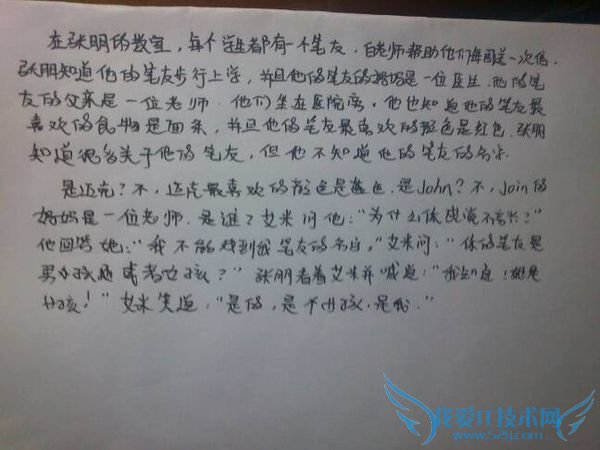 在张明的教室，每个学生都有一个笔友，白老师帮助他们每周送一次信.
张朋知道他的笔友步行上学，并且他的笔友的妈妈是一位医生.他的笔
友的父亲是一位老师.他们坐在医院旁.他也知道他的笔友最
喜欢的食物是面条，并且他的笔友最喜欢的颜色是红色.张朋
知道很多关于他的笔友，但他不知道他的笔友的名字.
是迈克？不，迈克最喜欢的颜色是蓝色.是John？不，Join的
妈妈是一位老师.是谁？艾米问他：“为什么你
他回答她：“我不能找到我笔友的名字。”艾米问：“你的笔友是
男小孩或者女孩？”张朋看着艾米并喊道：“我知道！她是
女孩！”艾米笑道，“是的，是个女孩，是我.”
我爱IT技术网
www.52ij.com